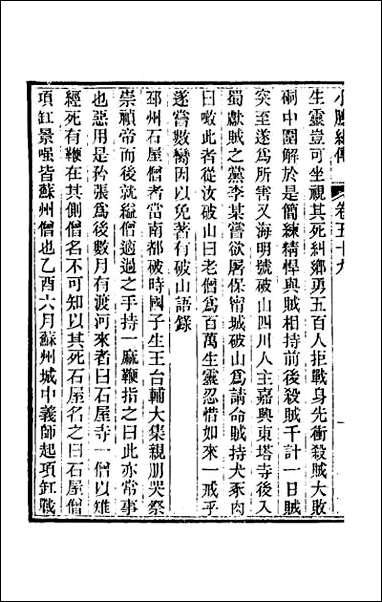 小腆紀傳　卷五十九　一
生靈豈可坐視其死糾鄉勇五百人拒戰身先衝殺賊大敗
硐中圍解於是簡練精悍與賊相持前後殺賊千計一日賊
突至遂爲所害又海明號破山四川人主嘉興東塔寺後入
蜀獻賊之黨李某嘗欲屠保甯城破山爲請命賊持犬豕肉
曰噉此者從汝破山曰老僧爲百萬生靈忍惜如來一戒乎
遂嘗數臠因以免著有破山語錄
邳州石屋僧者當南都破時國子生王台輔大集親朋哭祭
崇禎帝而後就縊僧適過之手持一麻鞭指之曰此亦常事
也惡用是矜張爲後數月有渡河來者曰石屋寺一僧以雉
經死有鞭在其側僧名不可知以其死石屋名之曰石屋僧
項缸景嘿皆蘇州僧也乙酉六月蘇州城中義師起項缸戰